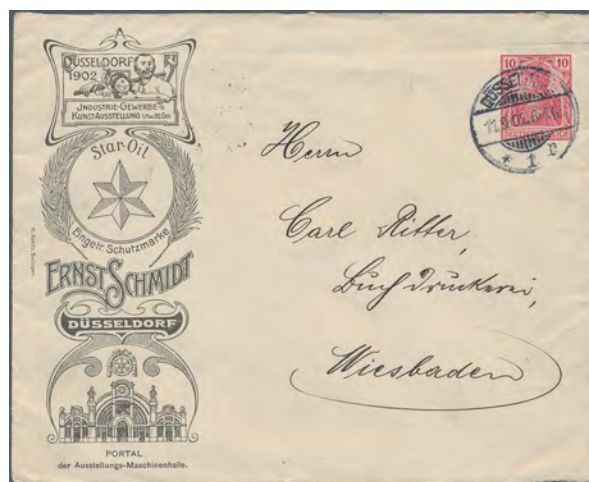 DÜSSELDORF
1902
INDUSTRIE-GEWERBE-U.
KUNSTAUSSTELLUNG
Star-Oil
Eingetr. Schutzmarke
ERNST SCHMIDT
DÜSSELDORF
PORTAL
der Ausstellungs-Maschinenhalle.
10 10
DEUTSCHES REICH
Herrn
Carl Ritter,
Buchdruckerei,
Wiesbaden